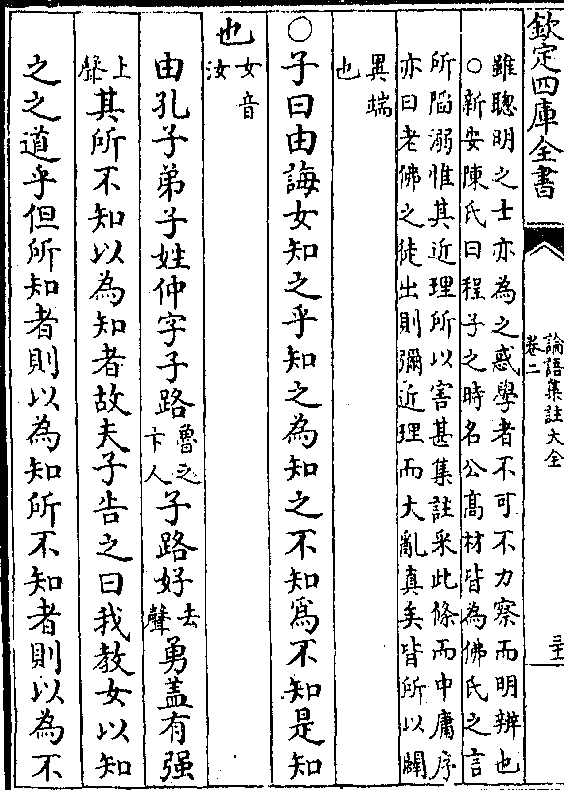 欽定四庫全書
論語集註大全
卷二
三十一
雖聰明之士亦為之惑學者不可不力察而明辨也
○新安陳氏曰程子之時名公高材皆為佛氏之言
所陷溺惟其近理所以害甚集註采此條而中庸序
亦曰老佛之徒出則彌近理而大亂真矣皆所以闢
異端
也
○子曰由誨女知之乎知之為知之不知為不知是知
也女音
汝
由孔子弟子姓仲字子路魯之
卞人子路好去
聲勇蓋有强
上
聲其所不知以為知者故夫子告之曰我教女以知
之之道乎但所知者則以為知所不知者則以為不